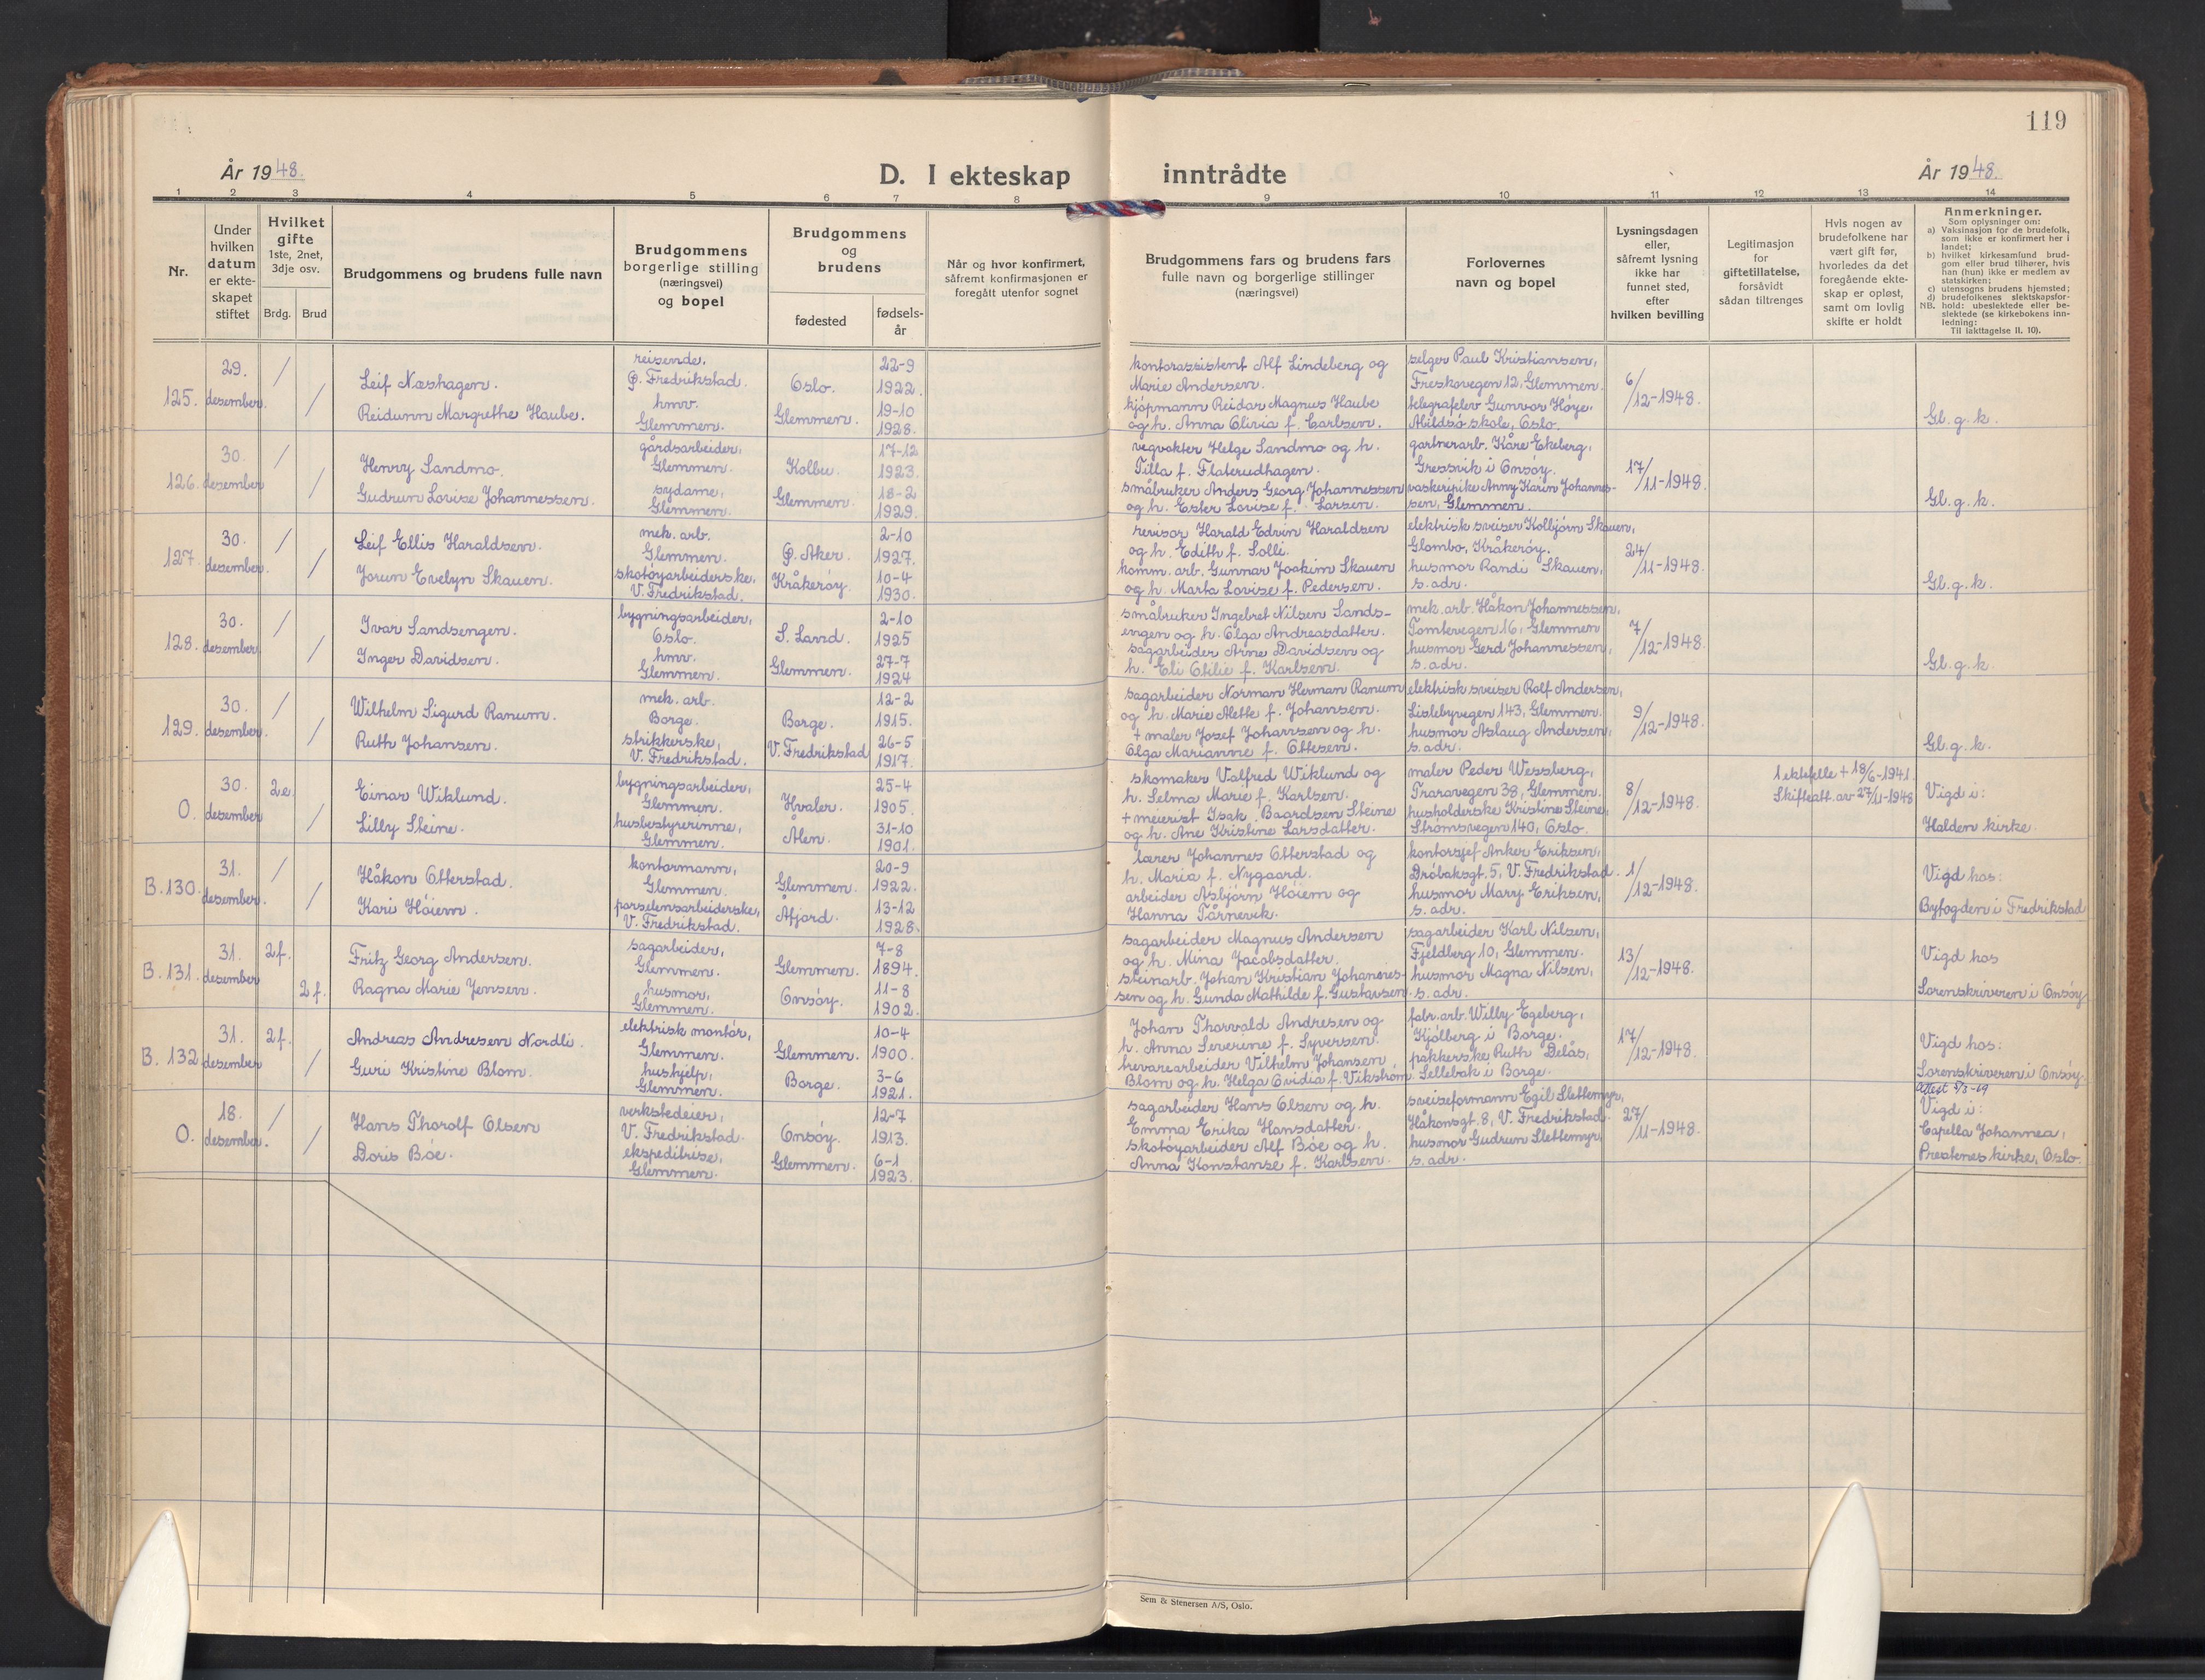 119
År 1948.
D. I ekteskap inntrådte
År 1948.
1 2 3 4 5 6 7 8 9 10 11 12 13 14
Nr.
Under hvilken datum er ekte-skapet stiftet
Hvilket gifte 1ste, 2net, 3dje osv.
Brdg. Brud
Brudgommens og brudens fulle navn
Brudgommens borgerlige stilling (næringsvei) og bopel
Brudgommens og brudens
fødested
fødsels-år
Når og hvor konfirmert, såfremt konfirmasjonen er foregått utenfor sognet
Brudgommens fars og brudens fars fulle navn og borgerlige stillinger (næringsvei)
Forlovernes navn og bopel
Lysningsdagen eller, såfremt lysning ikke har funnet sted, efter hvilken bevilling
Legitimasjon for giftetillatelse, forsåvidt sådan tiltrenges
Hvis nogen av brudefolkene har vært gift før, hvorledes da det foregående ekte-skap er opløst, samt om lovlig skifte er holdt
Anmerkninger.
Som oplysninger om:
a) Vaksinasjon for de brudefolk, som ikke er konfirmert her i landet;
b) hvilket kirkesamfund brud-gom eller brud tilhører, hvis han (hun) ikke er medlem av statskirken;
c) utensogns brudens hjemsted;
d) brudefolkenes slektskapsfor-hold: ubeslektede eller be-slektede (se kirkebokens inn-ledning:
NB. Til iakttagelse II. 10).
125.
29. desember.
/ /
Leif Næshagen.
Reidunn Margrethe Haube.
reisende,
P. Fredrikstad.
hmv.
Glemmen.
Oslo.
Glemmen.
22-9
1922.
19-10
1928.
kontorassistent Alf Lindeberg og
Marie Andersen.
kjøpmann Reidar Magnus Haube
og h. Anna Olivia f. Carlsen.
selger Paul Kristiansen,
Freskovegen 12, Glemmen.
telegrafelev Gunvor Høye,
Abildsø skole, Oslo.
6/12-1948.
Gl. g. k.
126.
30. desember
/ /
Henry Sandmo.
Gudrun Lovise Johannessen.
gårdsarbeider,
Glemmen.
sydame,
Glemmen.
Kolbu.
Glemmen.
17-12
1923.
18-2
1929.
vegvokter Helge Sandmo og h.
Tilla f. Flaterudhagen.
småbruker Anders Georg Johannessen
og h. Ester Lovise f. Larsen.
gartnerarb. Kåre Ekeberg,
Gressvik i Onsøy.
vaskeripike Anny Karin Johannes-
sen, Glemmen.
17/11-1948.
Gl. g. k.
127.
30. desember.
/ /
Leif Ellis Haraldsen.
Jorun Evelyn Skauen.
mek. arb.
Glemmen.
skotøyarbeiderske,
V. Fredrikstad.
P. Aker.
Kråkerøy.
2-10
1927.
10-4
1930.
revisor Harald Edvin Haraldsen
og h. Edith f. Solli.
komm. arb. Gunnar Joakim Skauen
og h. Marta Lovise f. Pedersen.
elektrisk sveiser Kolbjørn Skauen,
Glombo, Kråkerøy.
husmor Randi Skauen,
s. adr.
24/11-1948.
Gl. g. k.
128.
30. desember.
/ /
Ivar Sandsengen.
Inger Davidsen.
bygningsarbeider,
Oslo.
hmv.
Glemmen.
S. Land.
Glemmen.
2-10
1925
27-7
1924
småbruker Ingebret Nilsen Sands-
engen og h. Olga Andreasdatter.
sagarbeider Arne Davidsen og
h. Eli Otilie f. Karlsen.
mek. arb. Håkon Johannessen,
Tomtevegen 16, Glemmen
husmor Gerd Johannessen,
s. adr.
7/12-1948.
Gl. g. k.
129.
30. desember.
/ /
Wilhelm Sigurd Ranum.
Ruth Johansen.
mek. arb.
Borge.
strikkerske,
V. Fredrikstad.
Borge.
V. Fredrikstad
12-2
1915.
26-5
1917.
sagarbeider Norman Herman Ranum
og h. Marie Alette f. Johansen.
+ maler Josef Johansen og h.
Olga Marianne f. Ottesen.
elektrisk sveiser Rolf Andersen,
Lislebyvegen 143, Glemmen.
husmor Aslaug Andersen,
s. adr.
9/12-1948.
Gl. g. k.
O.
30. desember
2e. /
Einar Wiklund.
Lilly Steine.
bygningsarbeider,
Glemmen.
husbestyrerinne,
Glemmen.
Hvaler.
Ålen.
25-4
1905.
31-10
1901.
skomaker Valfred Wiklund og
h. Selma Marie f. Karlsen.
+ meierist Isak Baardsen Steine
og h. Ane Kristine Larsdatter.
maler Peder Wessberg,
Traravegen 38, Glemmen.
husholderske Kristine Steine,
Strømsvegen 140, Oslo.
8/12-1948.
1 ektefelle + 18/6-1941.
Skifteatt. av 27/11-1948
Vigd i:
Halden kirke.
B. 130.
31. desember.
/ /
Håkon Otterstad.
Kari Høiem.
kontormann,
Glemmen.
porselensarbeiderske,
V. Fredrikstad.
Glemmen.
Åfjord.
20-9
1922.
13-12
1928.
lærer Johannes Otterstad og
h. Maria f. Nygaard.
arbeider Asbjørn Høiem og
Hanna Tårnevik.
kontorsjef Anker Eriksen,
Drøbaksgt. 5, V. Fredrikstad.
husmor Mary Eriksen,
s. adr.
1/12-1948.
Vigd hos:
Byfogden i Fredrikstad
B. 131.
31. desember
2f. 2f.
Fritz Georg Andersen.
Ragna Marie Jensen.
sagarbeider,
Glemmen.
husmor,
Glemmen.
Glemmen.
Onsøy.
7-8
1894.
11-8
1902.
sagarbeider Magnus Andersen
og h. Mina Jacobsdatter.
steinarb. Johan Kristian Johannes-
sen og h. Gunda Mathilde f. Gustavsen.
sagarbeider Karl Nilsen,
Fjeldberg 10, Glemmen.
husmor Magna Nilsen,
s. adr.
13/12-1948.
Vigd hos
Sorenskriveren i Onsøy
B. 132
31. desember
2f. /
Andreas Andresen Nordli.
Guri Kristine Blom.
elektrisk montør,
Glemmen.
hushjelp,
Glemmen.
Glemmen.
Borge.
10-4
1900.
3-6
1921.
Johan Thorvald Andresen og
h. Anna Severine f. Syversen.
trevarearbeider Vilhelm Johansen
Blom og h. Helga Ovidia f. Vikstrøm.
fabr. arb. Willy Egeberg,
Kjølberg i Borge.
pakkerske Ruth Delås,
Sellebak i Borge.
17/12-1948.
Vigd hos:
Sorenskriveren i Onsøy
O.
18. desember.
/ /
Hans Thorolf Olsen
Doris Bøe.
verkstedeier,
V. Fredrikstad.
ekspeditrise,
Glemmen.
Onsøy.
Glemmen.
12-7
1913.
6-1
1923.
sagarbeider Hans Olsen og h.
Emma Erika Hansdatter.
skotøyarbeider Alf Bøe og h.
Anna Konstanse f. Karlsen.
sveiseformann Egil Slettemyr,
Håkonsgt. 8, V. Fredrikstad.
husmor Gudrun Slettemyr,
s. adr.
27/11-1948.
Attest
Vigd i:
Capella Johannea,
Prestenes kirke, Oslo.
Sem & Stenersen A/S, Oslo.